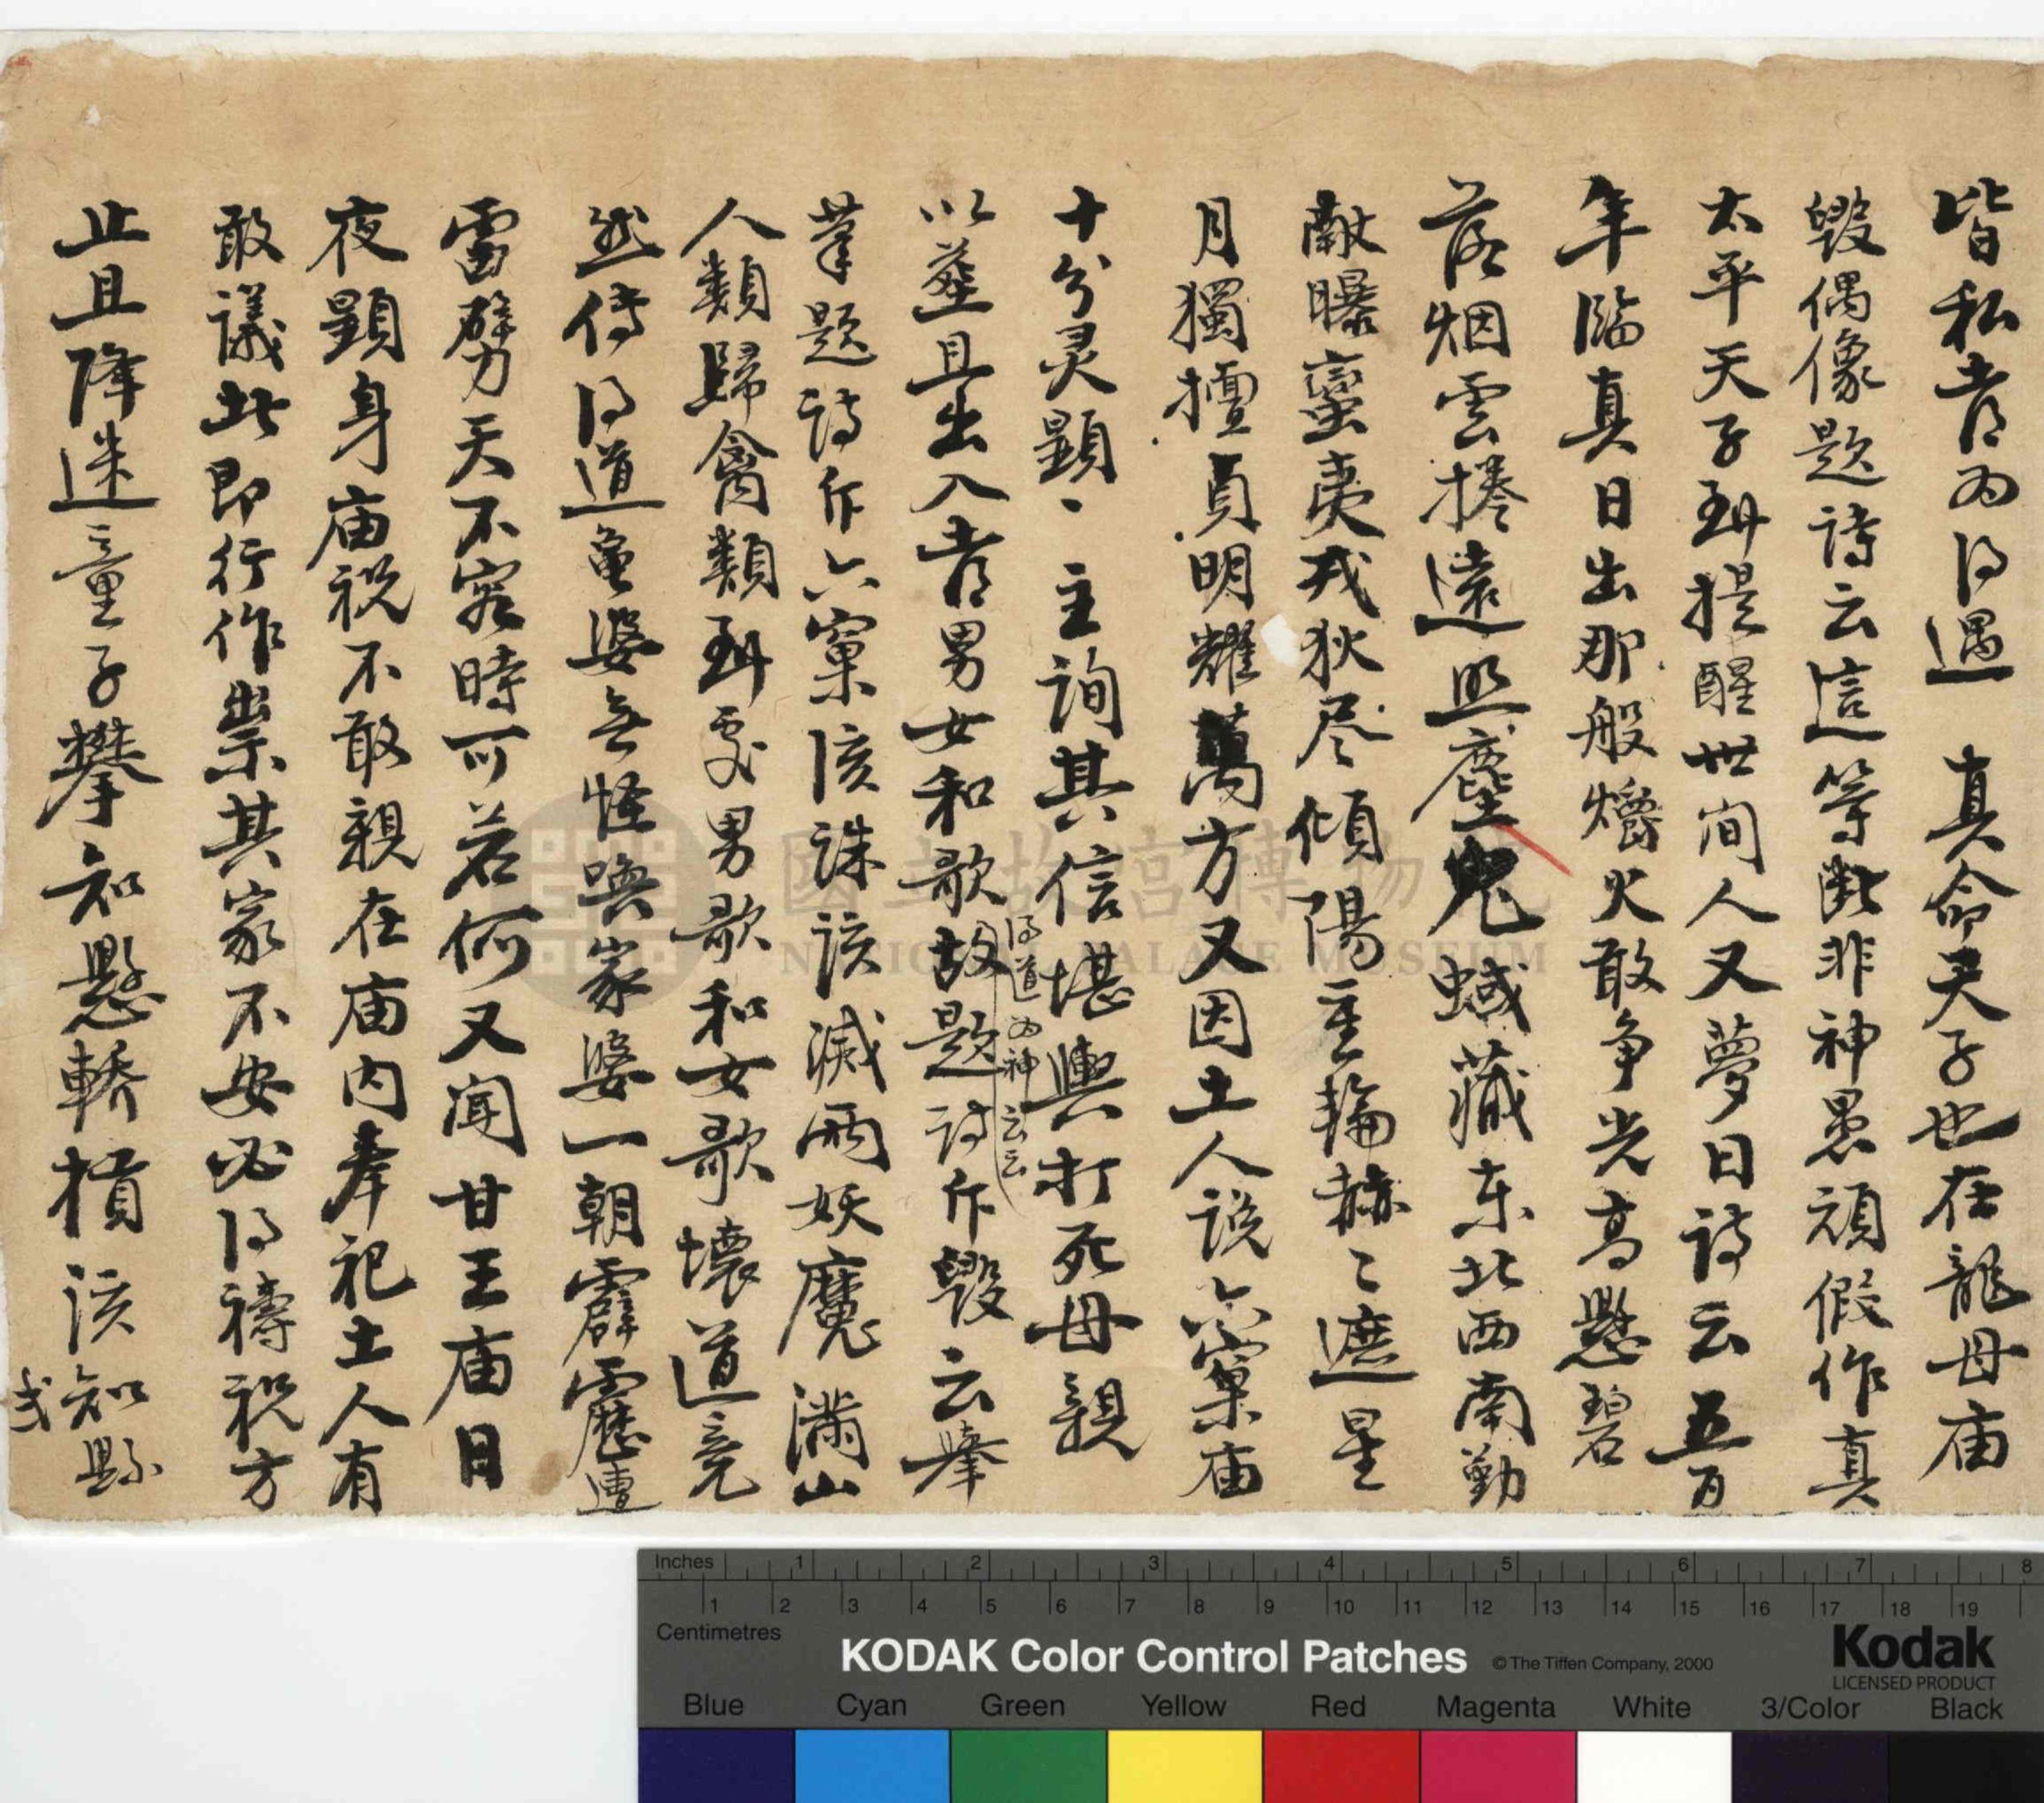 皆私者为得遇　真命天子也在龍母庙
毁偶像題詩云這等断非神愚頑假作真
太平天子到提醒世间人又夢日詩云五百
年臨真日出那般爝火敢争光高懸碧
落烟雲捲遠照塵鬼蜮藏东北西南勤
献曝蛮夷戎狄尽傾陽重輪赫〻遮星
月獨擅貞明耀萬方又因土人说六窠庙
十分灵顕〻主詢其信堪輿打死母親
以塟且出入者男女和歌故題詩斥毁云舉
得道为神云云
筆題詩斥六窠该诛该滅两妖魔満山
人類歸禽類到處男歌和女歌壞道竟
然传得道龟婆无怪唤家婆一朝霹靂遭
雷劈天不容時可若何又闻甘王庙日
夜顕身庙祝不敢親在庙内奉祀土人有
敢議此即行作祟其家不安必得禱祝方
止且降迷童子攀知懸轎損该知縣
式
國立故宮博物院
NATIONAL PALACE MUSEUM
Inches 1 2 3 4 5 6 7 8
1 2 3 4 5 6 7 8 9 10 11 12 13 14 15 16 17 18 19
Centimetres
KODAK Color Control Patches ©The Tiffen Company, 2000
Kodak
LICENSED PRODUCT
Blue Cyan Green Yellow Red Magenta White 3/Color Black